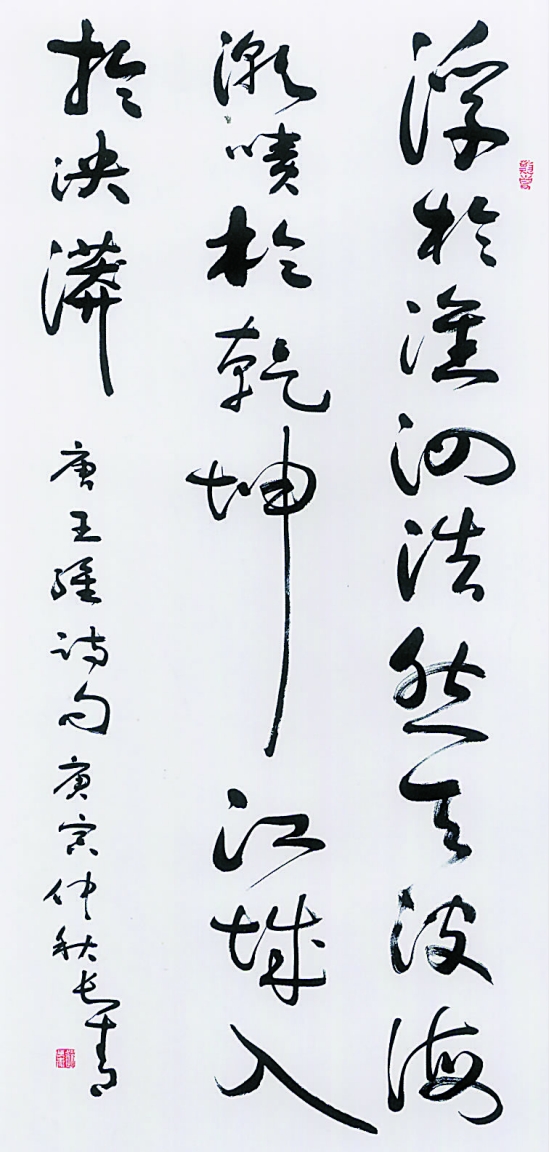 浮於淮泗浩然天波海
潮噴於乾坤江城入
於泱漭
唐王維詩句庚寅仲秋長青